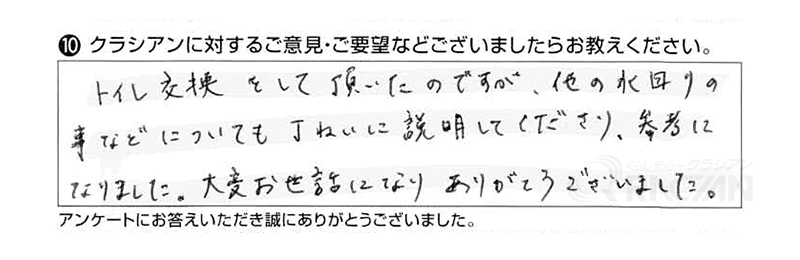 ⑩ クラシアンに対するご意見・ご要望などございましたらお教えください。
トイレ交換をして頂いたのですが、他の水回りの
事などについても丁ねいに説明してくださり、参考に
なりました。大変お世話になりありがとうございました。
アンケートにお答えいただき誠にありがとうございました。